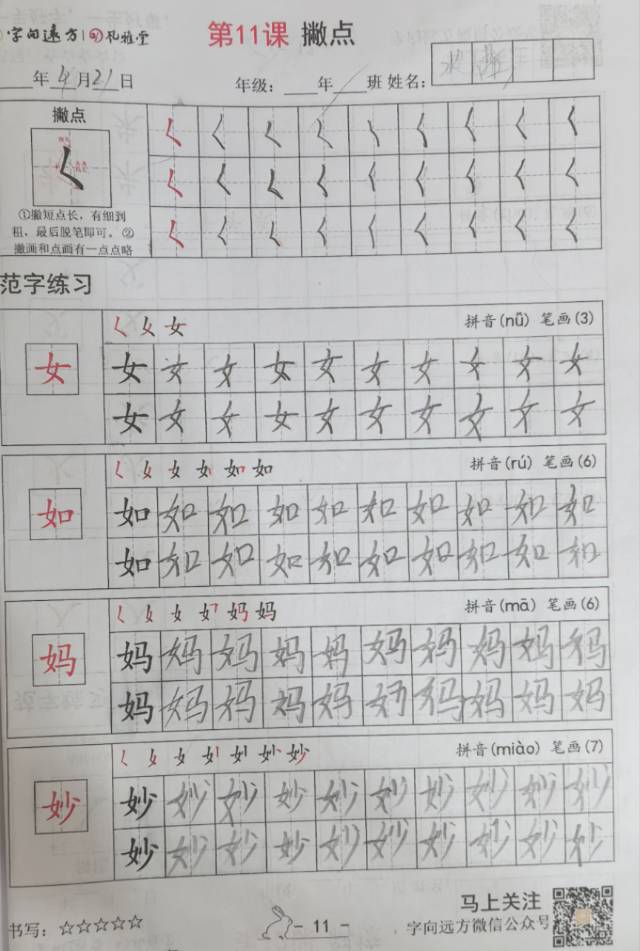 字向远方 礼雅堂
第11课 撇点
年 4 月 21 日 年级: 年 班 姓名:
撇点
①撇短点长,有细到
粗,最后脱笔即可。②
撇画和点画有一点点略
く く く く く く く く く
く く く く く く く く く
く く く く く く く く く
范字练习
女
拼音(nǚ) 笔画(3)
女 女 女 女 女 女 女 女 女 女
女 女 女 女 女 女 女 女 女 女
如
拼音(rú) 笔画(6)
如 如 如 如 如 如 如 如 如 如
如 如 如 如 如 如 如 如 如 如
妈
拼音(mā) 笔画(6)
妈 妈 妈 妈 妈 妈 妈 妈 妈 妈
妈 妈 妈 妈 妈 妈 妈 妈 妈 妈
妙
拼音(miào) 笔画(7)
妙 妙 妙 妙 妙 妙 妙 妙 妙 妙
妙 妙 妙 妙 妙 妙 妙 妙 妙 妙
书写:☆☆☆☆☆
- 11 -
马上关注
字向远方微信公众号